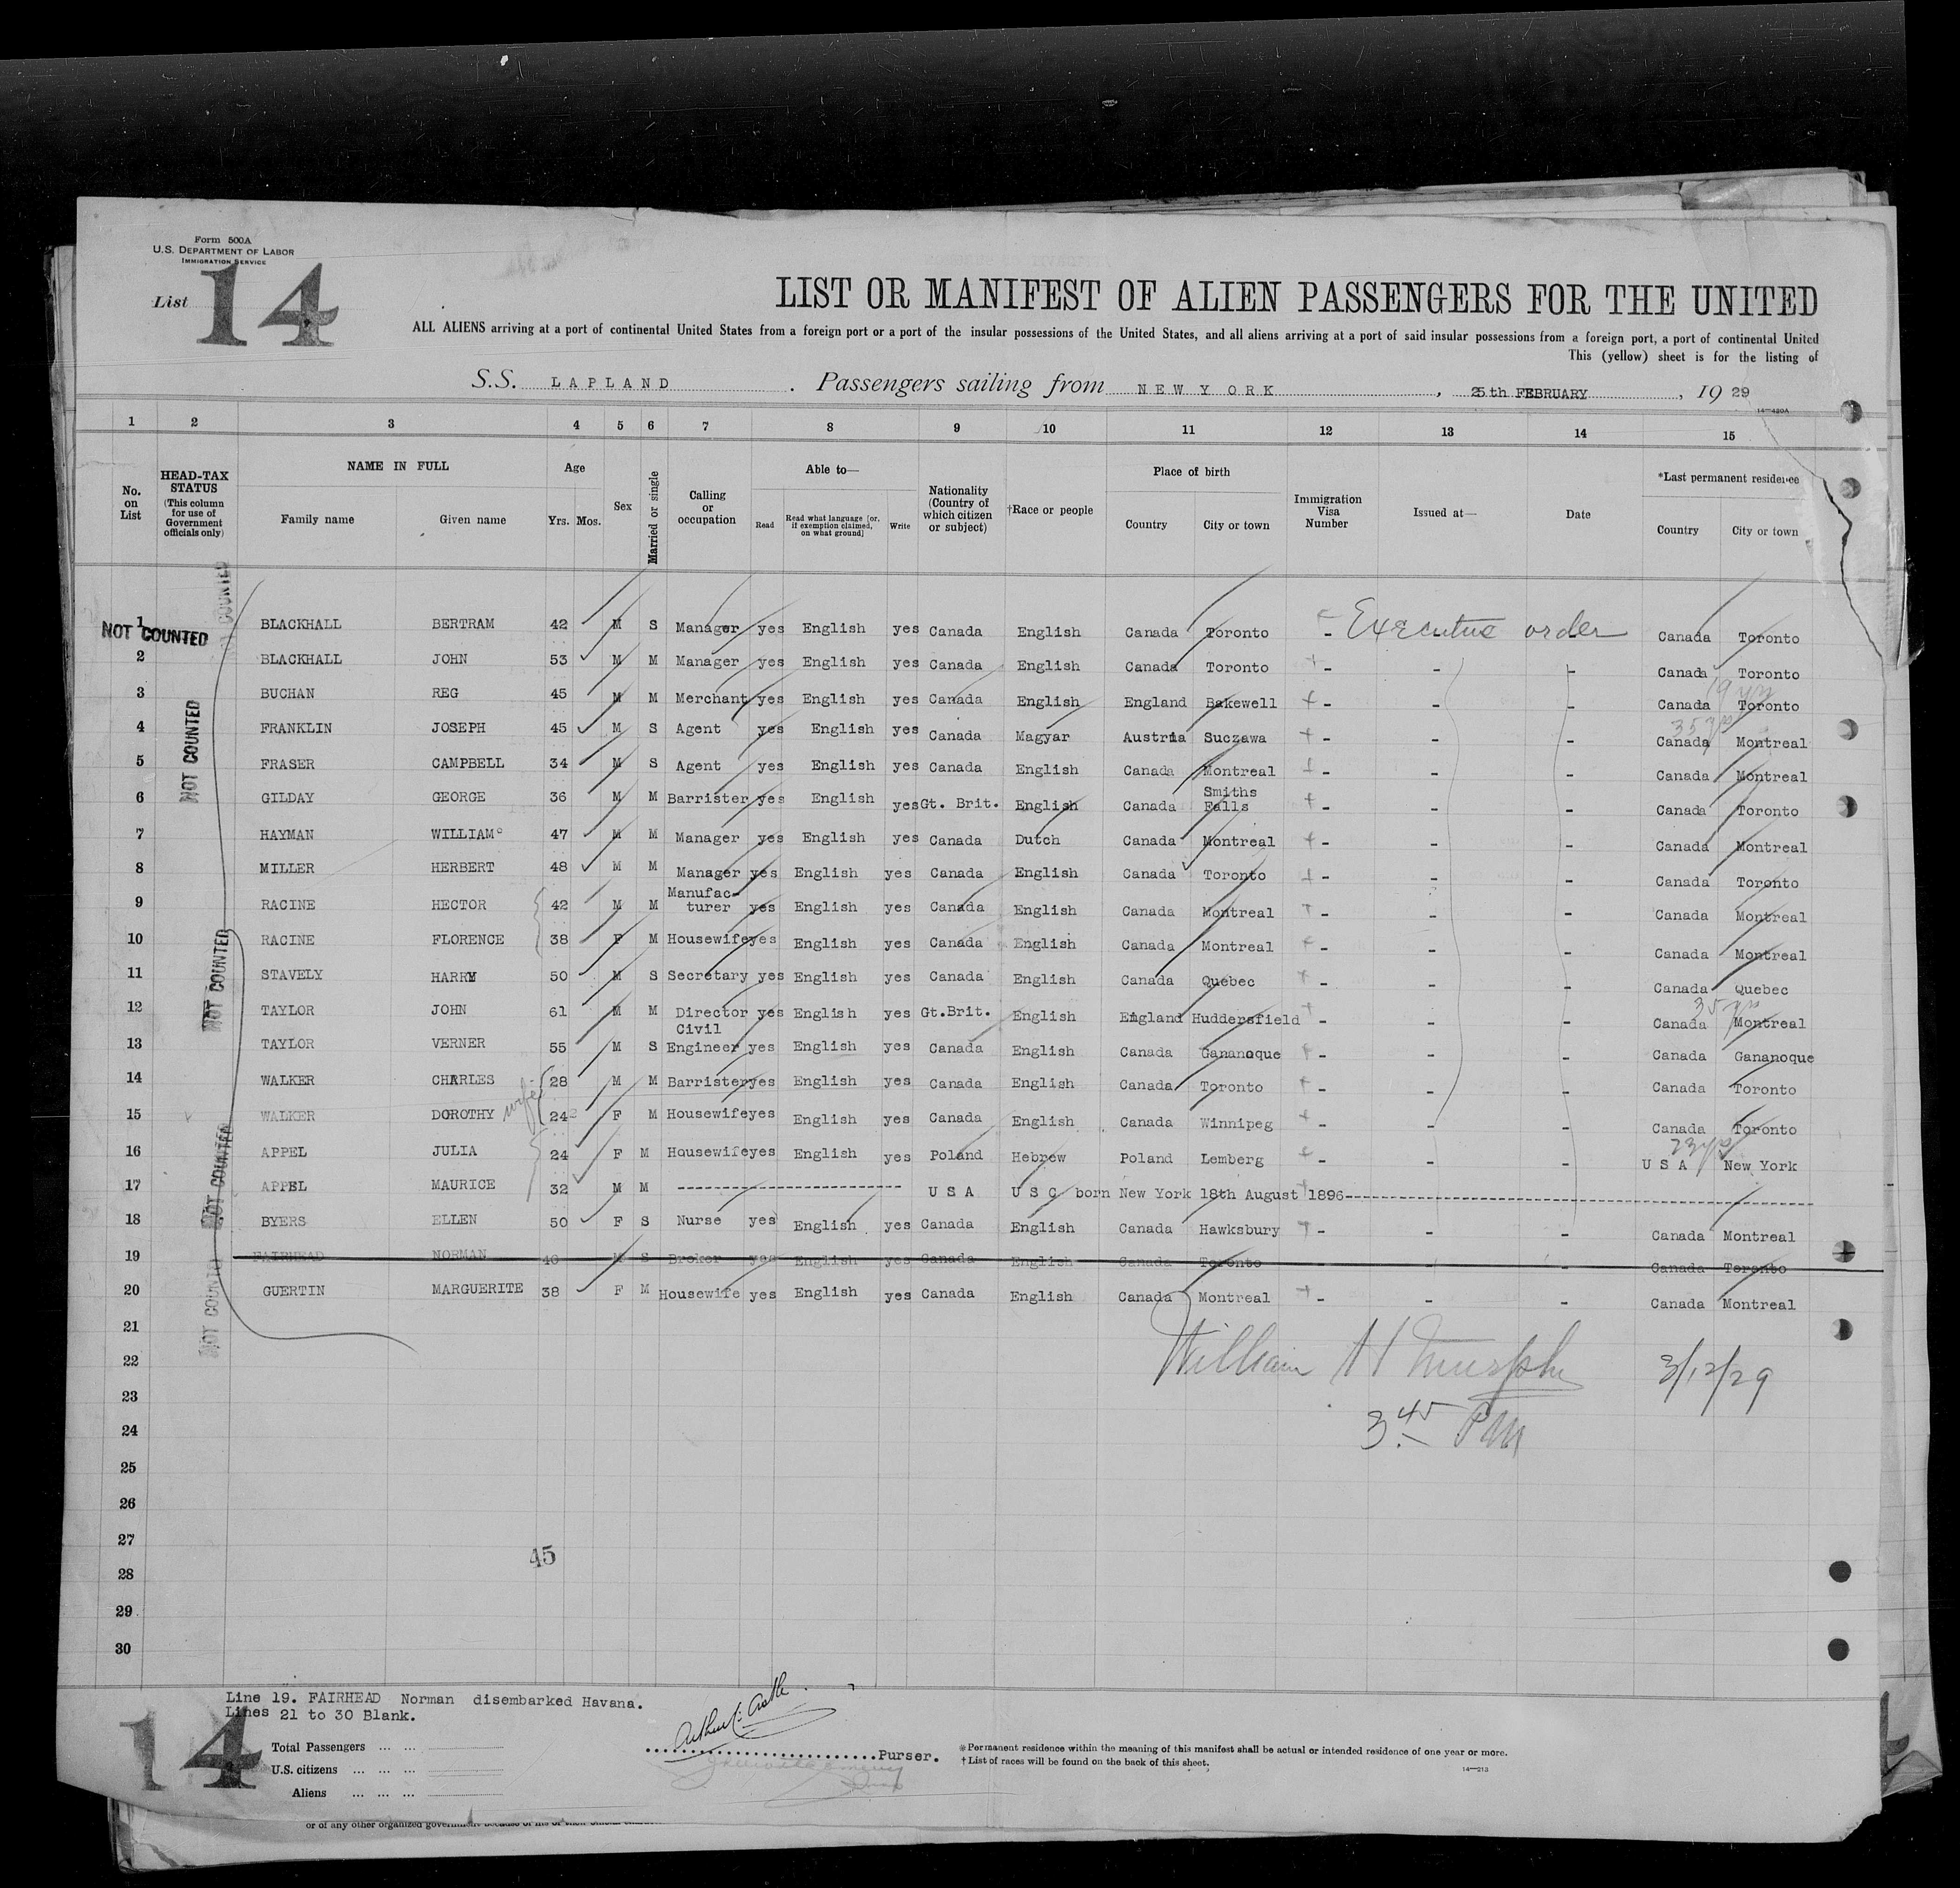 Form 500A
U.S. DEPARTMENT OF LABOR
IMMIGRATION SERVICE
List 14
LIST OR MANIFEST OF ALIEN PASSENGERS FOR THE UNITED
ALL ALIENS arriving at a port of continental United States from a foreign port or a port of the insular possessions of the United States, and all aliens arriving at a port of said insular possessions from a foreign port, a port of continental United
This (yellow) sheet is for the listing of
S.S. LAPLAND . Passengers sailing from NEW YORK , 25th FEBRUARY , 19 29
14—420A
1 2 3 4 5 6 7 8 9 10 11 12 13 14 15
No. on List
HEAD-TAX STATUS (This column for use of Government officials only)
NAME IN FULL Family name Given name
Age Yrs. Mos.
Sex
Married or single
Calling or occupation
Able to— Read Read what language [or, if exemption claimed, on what ground] Write
Nationality (Country of which citizen or subject)
†Race or people
Place of birth Country City or town
Immigration Visa Number
Issued at—
Date
*Last permanent residence Country City or town
NOT COUNTED
1 BLACKHALL BERTRAM 42 M S Manager yes English yes Canada English Canada Toronto - Executive order Canada Toronto
2 BLACKHALL JOHN 53 M M Manager yes English yes Canada English Canada Toronto - - - Canada Toronto
19 yrs
3 BUCHAN REG 45 M M Merchant yes English yes Canada English England Bakewell - - - Canada Toronto
35 yrs
4 FRANKLIN JOSEPH 45 M S Agent yes English yes Canada Magyar Austria Suczawa - - - Canada Montreal
5 FRASER CAMPBELL 34 M S Agent yes English yes Canada English Canada Montreal - - - Canada Montreal
6 GILDAY GEORGE 36 M M Barrister yes English yes Gt. Brit. English Canada Smiths Falls - - - Canada Toronto
7 HAYMAN WILLIAM 47 M M Manager yes English yes Canada Dutch Canada Montreal - - - Canada Montreal
8 MILLER HERBERT 48 M M Manager yes English yes Canada English Canada Toronto - - - Canada Toronto
9 RACINE HECTOR 42 M M Manufac-turer yes English yes Canada English Canada Montreal - - - Canada Montreal
10 RACINE FLORENCE 38 F M Housewife yes English yes Canada English Canada Montreal - - - Canada Montreal
11 STAVELY HARRY 50 M S Secretary yes English yes Canada English Canada Quebec - - - Canada Quebec
35 yrs
12 TAYLOR JOHN 61 M M Director yes English yes Gt.Brit. English England Huddersfield - - - Canada Montreal
13 TAYLOR VERNER 55 M S Civil Engineer yes English yes Canada English Canada Gananoque - - - Canada Gananoque
14 WALKER CHARLES 28 M M Barrister yes English yes Canada English Canada Toronto - - - Canada Toronto
wife
15 WALKER DOROTHY 24 F M Housewife yes English yes Canada English Canada Winnipeg - - - Canada Toronto
23 yrs
16 APPEL JULIA 24 F M Housewife yes English yes Poland Hebrew Poland Lemberg - - - U S A New York
17 APPEL MAURICE 32 M M ---------- U S A U S C born New York 18th August 1896----------
18 BYERS ELLEN 50 F S Nurse yes English yes Canada English Canada Hawksbury - - - Canada Montreal
19 FAIRHEAD NORMAN 40 M S Broker yes English yes Canada English Canada Toronto - - - Canada Toronto
20 GUERTIN MARGUERITE 38 F M Housewife yes English yes Canada English Canada Montreal - - - Canada Montreal
NOT COUNTED
NOT COUNTED
NOT COUNTED
NOT COUNTED
NOT COUNTED
21
22 William H Murphy 3/12/29
23
24 3 45 PM
25
26
27
45
28
29
30
Line 19. FAIRHEAD Norman disembarked Havana.
Lines 21 to 30 Blank.
14
Total Passengers ... ...
U.S. citizens ... ... ...
Aliens ... ... ...
Purser.
*Permanent residence within the meaning of this manifest shall be actual or intended residence of one year or more.
†List of races will be found on the back of this sheet.
14—213
or of any other organized government because of his or their official